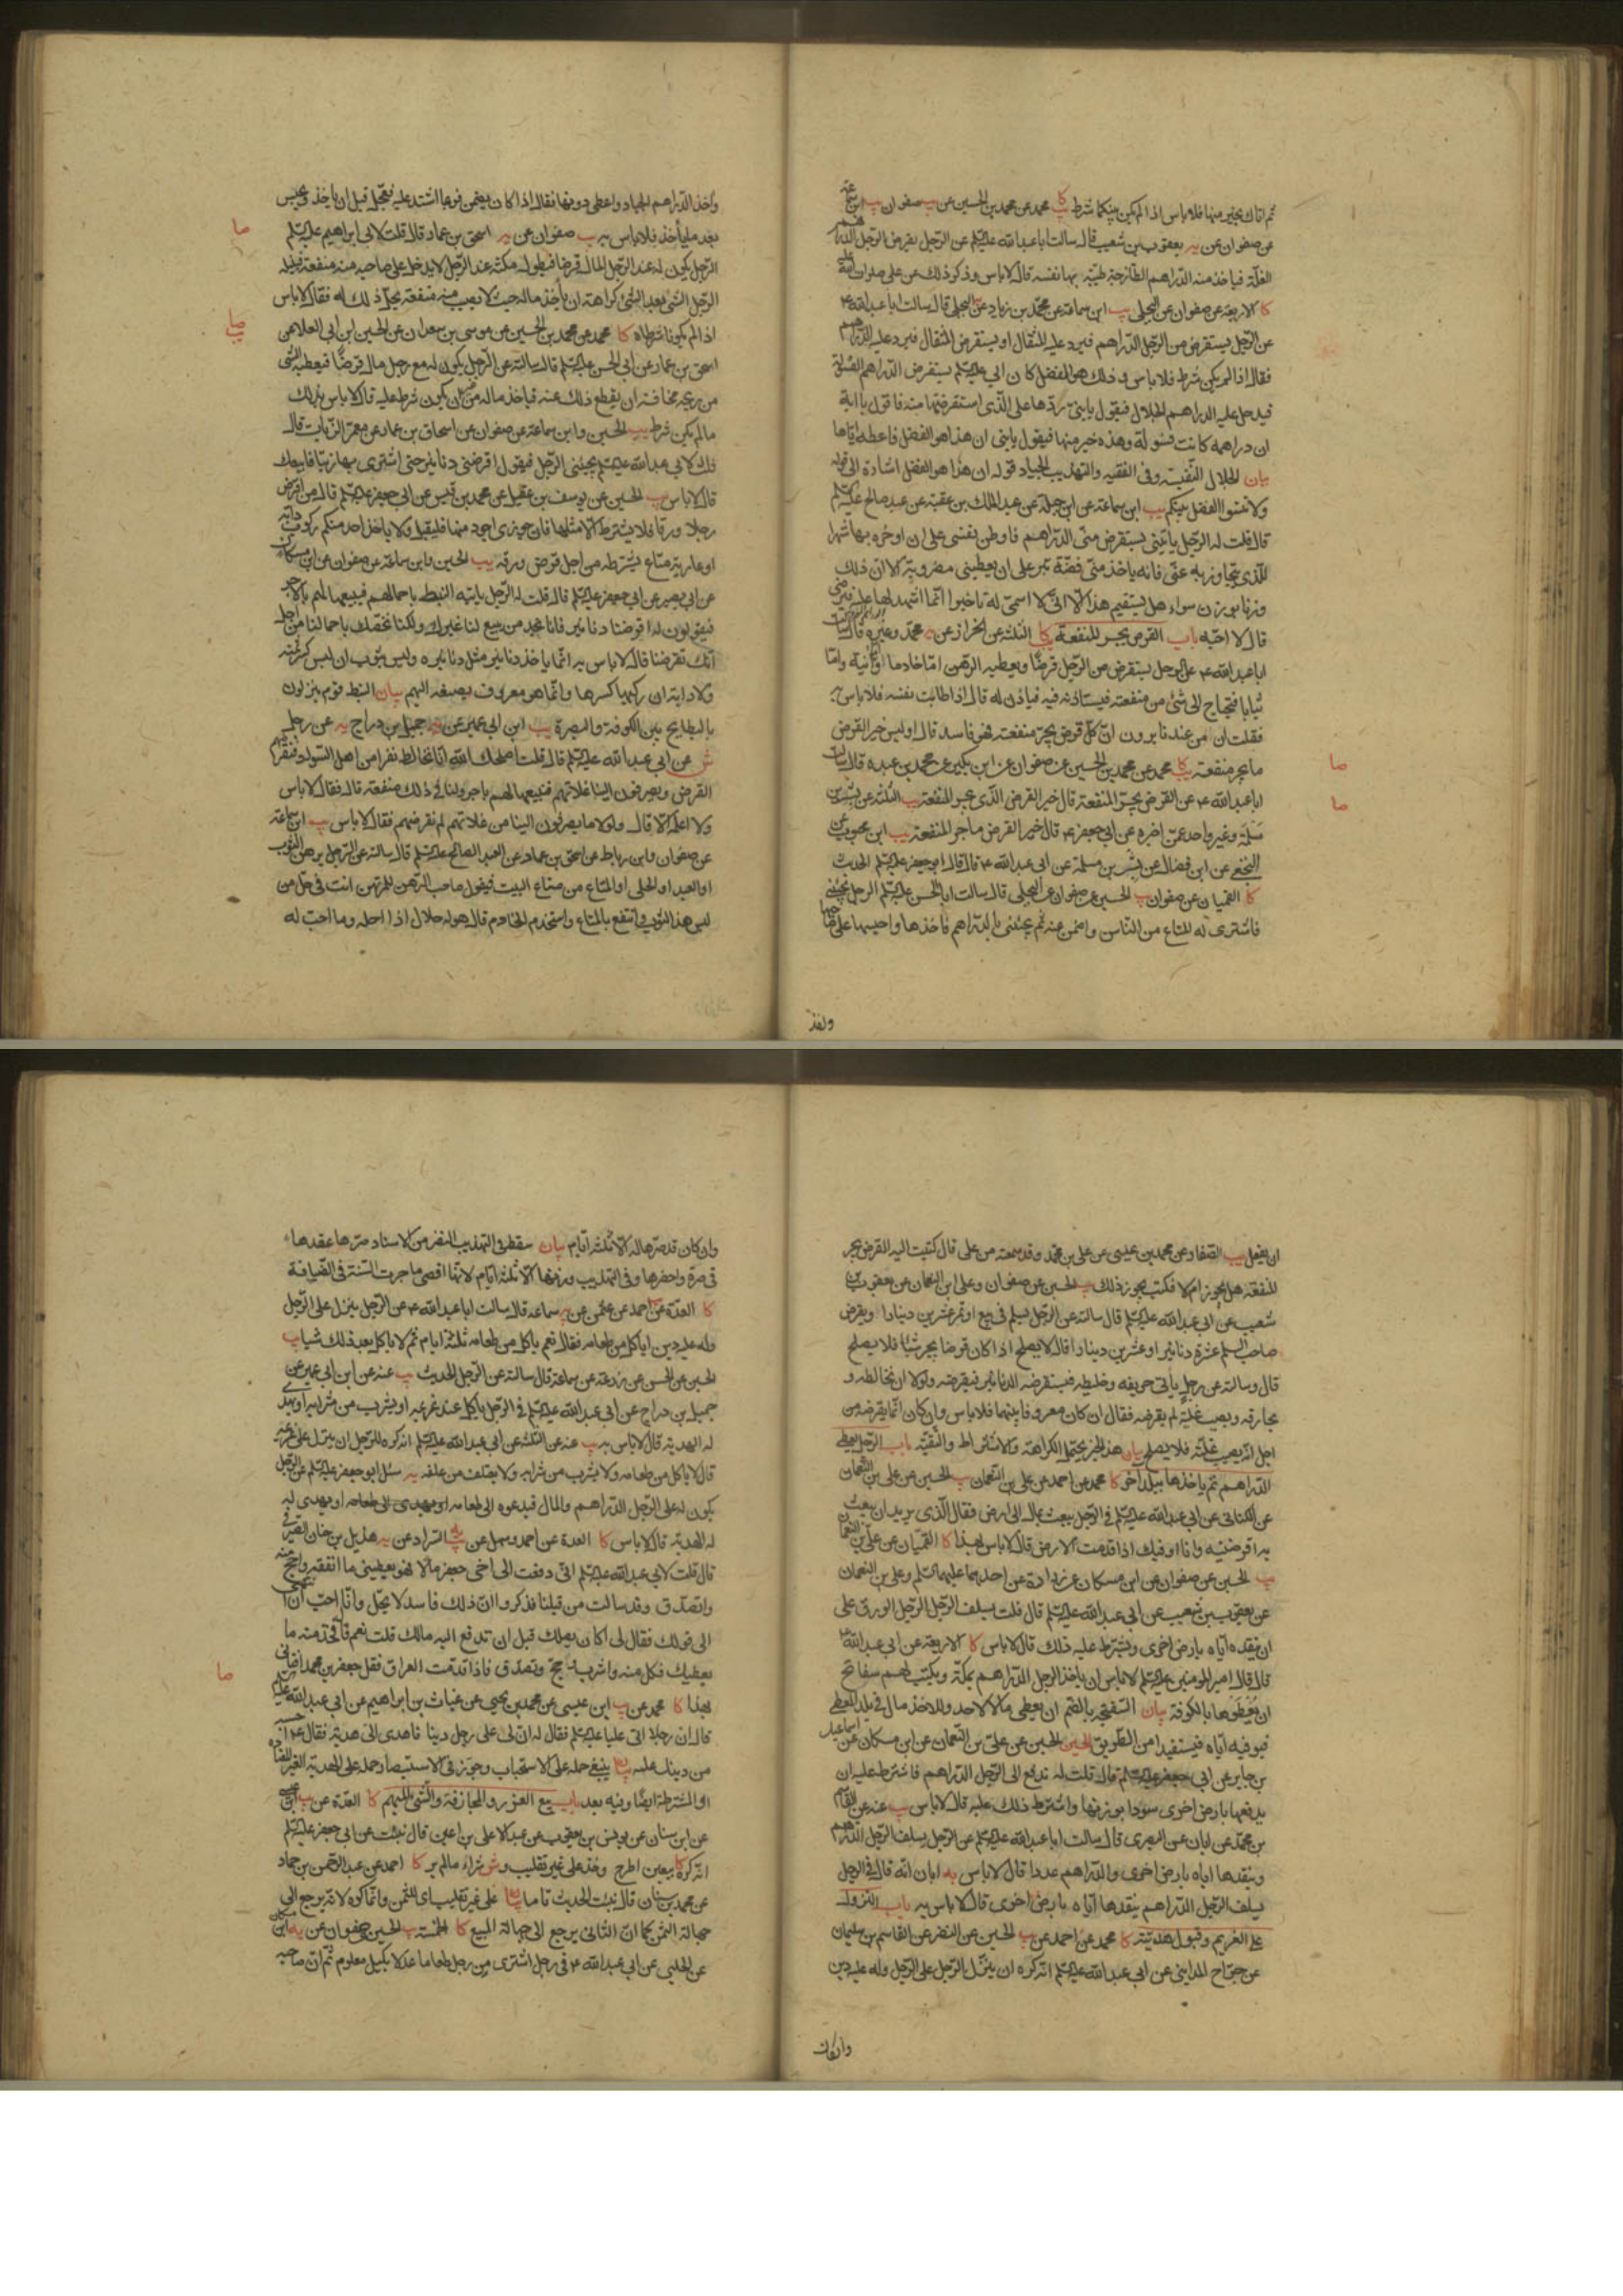 ثم اتاك بخير منها فلا باس اذا لم يكن بينكما شرط كا محمد عن محمد بن الحسين عن يب صفوان يب ابن سماعة
عن صفوان عن يه يعقوب بن شعيب قال سالت ابا عبدالله عليه السلام عن الرجل يقرض الرجل الدراهم
الغلة فياخذ منه الدراهم الطازجية طيبة بها نفسه قال لا باس وذكر ذلك عن علي صلوات الله عليه
كا الاربعة عن صفوان عن البجلي يب ابن سماعة عن محمد بن زياد عن البجلي قال سالت ابا عبدالله ع
عن الرجل يستقرض من الرجل الدراهم فيرد عليه المثقال او يستقرض المثقال فيرد عليه الدراهم
فقال اذا لم يكن شرط فلا باس وذلك هو الفضل كان ابي عليه السلام يستقرض الدراهم الفسولة
فيدخل عليه الدراهم الجلال فيقول يا بني ردها على الذي استقرضتها منه فاقول يا ابة
ان دراهمه كانت فسولة وهذه خير منها فيقول يا بني ان هذا هو الفضل فاعطه اياها
بيان الجلال النفيسة وفي الفقيه والتهذيب الجياد قوله ان هذا هو الفضل اشارة الى قوله
ولا تنسوا الفضل بينكم يب ابن سماعة عن ابن جبلة عن عبد الملك بن عتبة عن عبد صالح عليه السلام
قال قلت له الرجل ياتيني يستقرض مني الدراهم فاوطن نفسي على ان اوخره بها شهرا
للذي يتجاوز به عني فانه ياخذ مني فضة تبر على ان يعطيني مضروبة الا ان ذلك
وزنا بوزن سواء هل يستقيم هذا الا اني لا اسمي له تاخيرا انما اشهد لها عليه فيرضى
قال لا احبه باب القرض يجر المنفعة كا الثلثة عن الخراز عن يه محمد وغيره قال سالت
ابا عبدالله ع عن الرجل يستقرض من الرجل قرضا ويعطيه الرهن اما خادما او انية واما
ثيابا فيحتاج الى شئ من منفعته فيستاذنه فيه فياذن له قال اذا طابت نفسه فلا باس
فقلت ان من عندنا يرون ان كل قرض يجر منفعة فهو فاسد قال اوليس خير القرض
ما جر منفعة يب كا محمد عن محمد بن الحسين عن صفوان عن ابن بكير عن محمد بن عبده قال سالت
ابا عبدالله ع عن القرض يجر المنفعة قال خير القرض الذي يجر المنفعة يب الثلثة عن بشر بن
مسلمة وغير واحد عمن اخبره عن ابي جعفر ع قال خير القرض ما جر المنفعة يب ابن محبوب عن
النخعي عن ابن فضال عن بشر بن مسلمة عن ابي عبدالله ع قال قال ابو جعفر عليه السلام الحديث
كا القميان عن صفوان يب الحسين عن صفوان عن البجلي قال سالت ابا الحسن عليه السلام الرجل يجيئني
فاشتري له المتاع من الناس واضمن عنه ثم يجيئني بالدراهم فاخذها واحبسها على صاحبها
صا
صا
واخذ
واخذ الدراهم الجياد واعطي دونها فقال اذا كان يضمن فربما اشتد عليه فعجل قبل ان ياخذ وحبس
بعد ما ياخذ فلا باس به يب صفوان عن يه اسحق بن عمار قال قلت لابي ابراهيم عليه السلام
الرجل يكون له عند الرجل المال قرضا فيطول مكثه عند الرجل لا يدخل على صاحبه منه منفعة فينيله
الرجل الشئ بعد الشئ كراهة ان ياخذ ماله حيث لا يصيب منه منفعة يحل ذلك له فقال لا باس
اذا لم يكونا شرطاه كا محمد عن محمد بن الحسين عن موسى بن سعدان عن الحسين بن ابي العلا عن
اسحق بن عمار عن ابي الحسن عليه السلام قال سالته عن الرجل يكون له مع رجل مال قرضا فيعطيه الشئ
من ربحه مخافة ان يقطع ذلك عنه فياخذ ماله من غير ان يكون شرط عليه قال لا باس بذلك
ما لم يكن شرط يب الحسين وابن سماعة عن صفوان عن اسحاق بن عمار عن معمر الزيات قال
قلت لابي عبدالله عليه السلام يجيئني الرجل فيقول اقرضني دنانير حتى اشتري بها زيتا فابيعك
قال لا باس يب الحسين عن يوسف بن عقيل عن محمد بن قيس عن ابي جعفر عليه السلام قال من اقرض
رجلا ورقا فلا يشترط الا مثلها فان جوزي اجود منها فليقبل ولا ياخذ احد منكم ركوب دابة
او عارية متاع يشترطه من اجل قرض ورقه يب الحسين وابن سماعة عن صفوان عن ابن مسكان
عن ابي بصير عن ابي جعفر عليه السلام قال قلت له الرجل ياتيه النبط باحمالهم فيبيعها لهم بالاجر
فيقولون له اقرضنا دنانير فانا نجد من يبيع لنا غيرك ولكنا نخصك باحمالنا من اجل
انك تقرضنا قال لا باس به انما ياخذ دنانير مثل دنانيره وليس بثوب ان لبس كسر ثمنه
ولا دابة ان ركبها كسرها وانما هو معروف يصنعه اليهم بيان النبط قوم ينزلون
بالبطايح بين الكوفة والبصرة يب ابن ابي عمير عن يه جميل بن دراج يه عن رجل
ش عن ابي عبدالله عليه السلام قال قلت اصلحك الله انا نخالط نفرا من اهل السواد فنقرضهم
القرض ويصرفون الينا غلاتهم فنبيعها لهم باجر ولنا في ذلك منفعة قال فقال لا باس
ولا اعلمه الا قال ولولا ما يصرفون الينا من غلاتهم لم نقرضهم فقال لا باس يب ابن سماعة
عن صفوان وابن رباط عن اسحق بن عمار عن العبد الصالح عليه السلام قال سالته عن الرجل يرهن الثوب
او العبد او الحلي او المتاع من متاع البيت فيقول صاحب الرهن للمرتهن انت في حل من
لبس هذا الثوب وانتفع بالمتاع واستخدم الخادم قال هو له حلال اذا احله وما احب له
صا
صا
ان يفعل يب الصفار عن محمد بن عيسى عن علي بن محمد وقد سمعته من علي قال كتبت اليه القرض يجر
المنفعة هل يجوز ام لا فكتب يجوز ذلك يب الحسين عن صفوان وعلي بن النعمان عن يعقوب بن
شعيب عن ابي عبدالله عليه السلام قال سالته عن الرجل يسلم في بيع او تمر عشرين دينارا ويقرض
صاحب السلم عشرة دنانير او عشرين دينارا قال لا يصلح اذا كان قرضا يجر شيئا فلا يصلح
قال وسالته عن رجل ياتي حريفه وخليطه فيستقرضه الدنانير فيقرضه ولولا ان يخالطه و
يحارفه ويصيب عليه لم يقرضه فقال ان كان معروفا بينهما فلا باس وان كان انما يقرضه من
اجل انه يصيب عليه فلا يصلح بيان هذا الخبر يحتمل الكراهة والاشتراط والتقية باب الرجل يعطي
الدراهم ثم ياخذها ببلد اخر كا محمد عن احمد عن علي بن النعمان يب الحسين عن علي بن النعمان
عن الكناني عن ابي عبدالله عليه السلام في الرجل يبعث بمال الى ارض فقال الذي يريد ان يبعث
به اقرضنيه وانا اوفيك اذا قدمت الارض قال لا باس بهذا كا القميان عن علي بن النعمان
يب الحسين عن صفوان عن ابن مسكان عن زرارة عن احدهما عليهما السلام وعلي بن النعمان
عن يعقوب بن شعيب عن ابي عبدالله عليه السلام قال قلت يسلف الرجل الرجل الورق على
ان ينقده اياه بارض اخرى ويشترط عليه ذلك قال لا باس كا الاربعة عن ابي عبدالله ع
قال قال امير المومنين عليه السلام لا باس ان ياخذ الرجل الدراهم بمكة ويكتب لهم سفاتج
ان يعطوها بالكوفة بيان السفتجة بالضم ان يعطي مالا لاحد وللاخذ مال في بلد المعطي
فيوفيه اياه فيستفيد امن الطريق الحسين عن علي بن النعمان عن ابن مسكان عن اسماعيل
بن جابر عن ابي جعفر عليه السلام قال قلت له ندفع الى الرجل الدراهم فاشترط عليه ان
يدفعها بارض اخرى سودا بوزنها واشترط ذلك عليه قال لا باس يب عنه عن القاسم
بن محمد عن ابان عن البصري قال سالت ابا عبدالله عليه السلام عن الرجل يسلف الرجل الدراهم
وينقدها اياه بارض اخرى والدراهم عددا قال لا باس يه ابان انه قال في الرجل
يسلف الرجل الدراهم ينقدها اياه بارض اخرى قال لا باس به باب النزول
على الغريم وقبول هديته كا محمد عن احمد عن يب الحسين عن النضر عن القاسم بن سليمان
عن جراح المدايني عن ابي عبدالله عليه السلام انه كره ان ينزل الرجل على الرجل وله عليه دين
وان كان
وان كان قد صرها له الا ثلثة ايام بيان سقط في التهذيب النضر من الاسناد صرها عقدها
في صرة واحضرها وفي التهذيب وزنها الا ثلثة ايام لانها اقصى ما جرت السنة في الضيافة
كا العدة عن احمد عن عثمن عن يه سماعة قال سالت ابا عبدالله ع عن الرجل ينزل على الرجل
وله عليه دين اياكل من طعامه فقال نعم ياكل من طعامه ثلثة ايام ثم لا ياكل بعد ذلك شيا يب
الحسين عن الحسن عن زرعة عن سماعة قال سالته عن الرجل الحديث يب عنه عن ابن ابي عمير عن
جميل بن دراج عن ابي عبدالله عليه السلام في الرجل ياكل عند غريمه او يشرب من شرابه او يهدي
له الهدية قال لا باس به يب عنه عن الثلثة عن ابي عبدالله عليه السلام انه كره للرجل ان ينزل على غريمه
قال لا ياكل من طعامه ولا يشرب من شرابه ولا يعتلف من علفه يه سئل ابو جعفر عليه السلام عن الرجل
يكون له على الرجل الدراهم والمال فيدعوه الى طعامه او يهدي له
له الهدية قال لا باس كا العدة عن احمد وسهل عن يب السراد عن يه هذيل بن حنان الصيرفي
قال قلت لابي عبدالله عليه السلام اني دفعت الى اخي جعفر مالا فهو يعطيني ما انفقه واحج منه
واتصدق وقد سالت من قبلنا فذكروا ان ذلك فاسد لا يحل وانا احب ان انتهي
الى قولك فقال لي اكان يصلك قبل ان تدفع اليه مالك قلت نعم قال خذ منه ما
يعطيك فكل منه واشرب وحج وتصدق فاذا قدمت العراق فقل جعفر بن محمد افتاني
بهذا كا محمد عن يب ابن عيسى عن محمد بن يحيى عن غياث بن ابراهيم عن ابي عبدالله عليه السلام
قال ان رجلا اتى عليا عليه السلام فقال له ان لي على رجل دينا فاهدى الي هدية فقال ع احسبه
من دينك عليه بيان ينبغي حمله على الاستحباب وجوز في الاستبصار حمله على الهدية الغير المعتادة
او المشترطة ايضا وفيه بعد باب بيع الغرر والمجازفة والشئ المبهم كا العدة عن
عن ابن سنان عن يونس بن يعقوب عن عبد الاعلى بن اعين قال نبئت عن ابي جعفر عليه السلام
انه كره بيعين اطرح وخذ على غير تقليب وشراء ما لم ير كا احمد عن عبد الرحمن بن حماد
عن محمد بن سنان قال نبئت الحديث بيان على غير تقليب اي للثمن وانما كره لانه يرجع الى
جهالة الثمن كما ان الثاني يرجع الى جهالة المبيع كا الخمسة يب الحسين عن صفوان عن يه ابن مسكان
عن الحلبي عن ابي عبدالله ع في رجل اشترى من رجل طعاما عدلا بكيل معلوم ثم ان صاحبه
صا